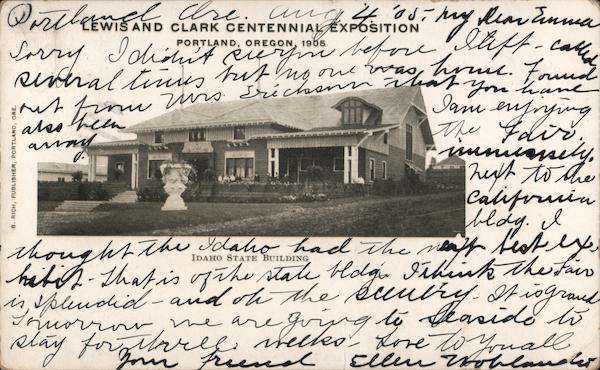 Portland Ore. Aug 4 '05. My Dear Emma
LEWIS AND CLARK CENTENNIAL EXPOSITION
PORTLAND, OREGON, 1905
Sorry I didn't see you before I left - called
several times but no one was home. Found
out from Mrs. Erickson that you have
also been
away.
I am enjoying
the Fair
immensely.
Next to the
California
bldg. I
B. RICH, PUBLISHER, PORTLAND, ORE.
IDAHO STATE BUILDING
thought the Idaho had the next best exhibit - that is of the state bldgs. I think the Fair
is splendid - and oh the scenery. It is grand
Tomorrow we are going to seaside to
stay for three weeks - Love to you all
Your friend Ellen